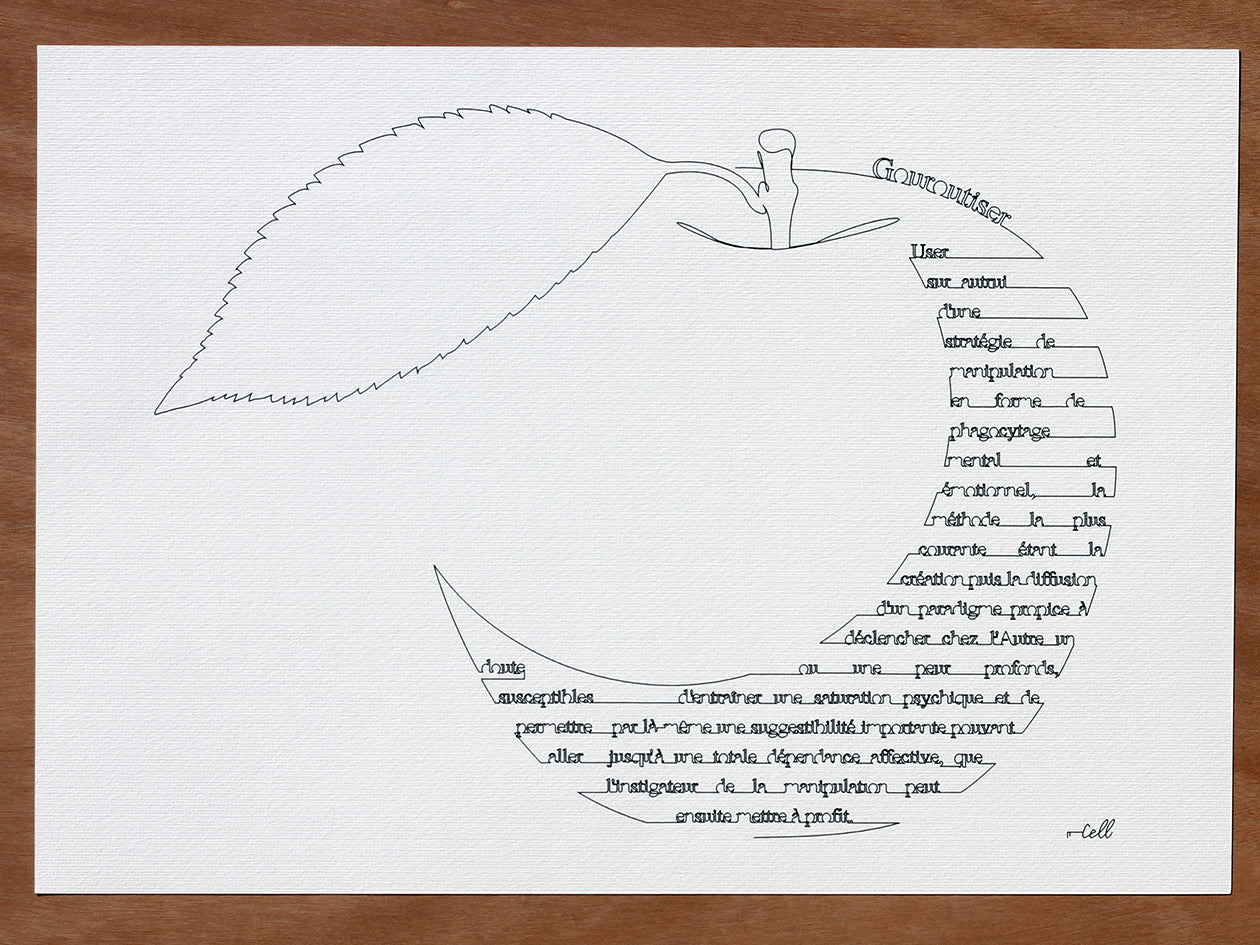 Gouroutiser
User
sur autrui
d'une
stratégie de
manipulation
en forme de
phagocytage
mental et
émotionnel, la
méthode la plus
courante étant la
création puis la diffusion
d'un paradigme propice à
déclencher chez l'Autre un
doute ou une peur profonds,
susceptibles d'entraîner une saturation psychique et de
permettre par là-même une suggestibilité importante pouvant
aller jusqu'à une totale dépendance affective, que
l'instigateur de la manipulation peut
ensuite mettre à profit.
Cell